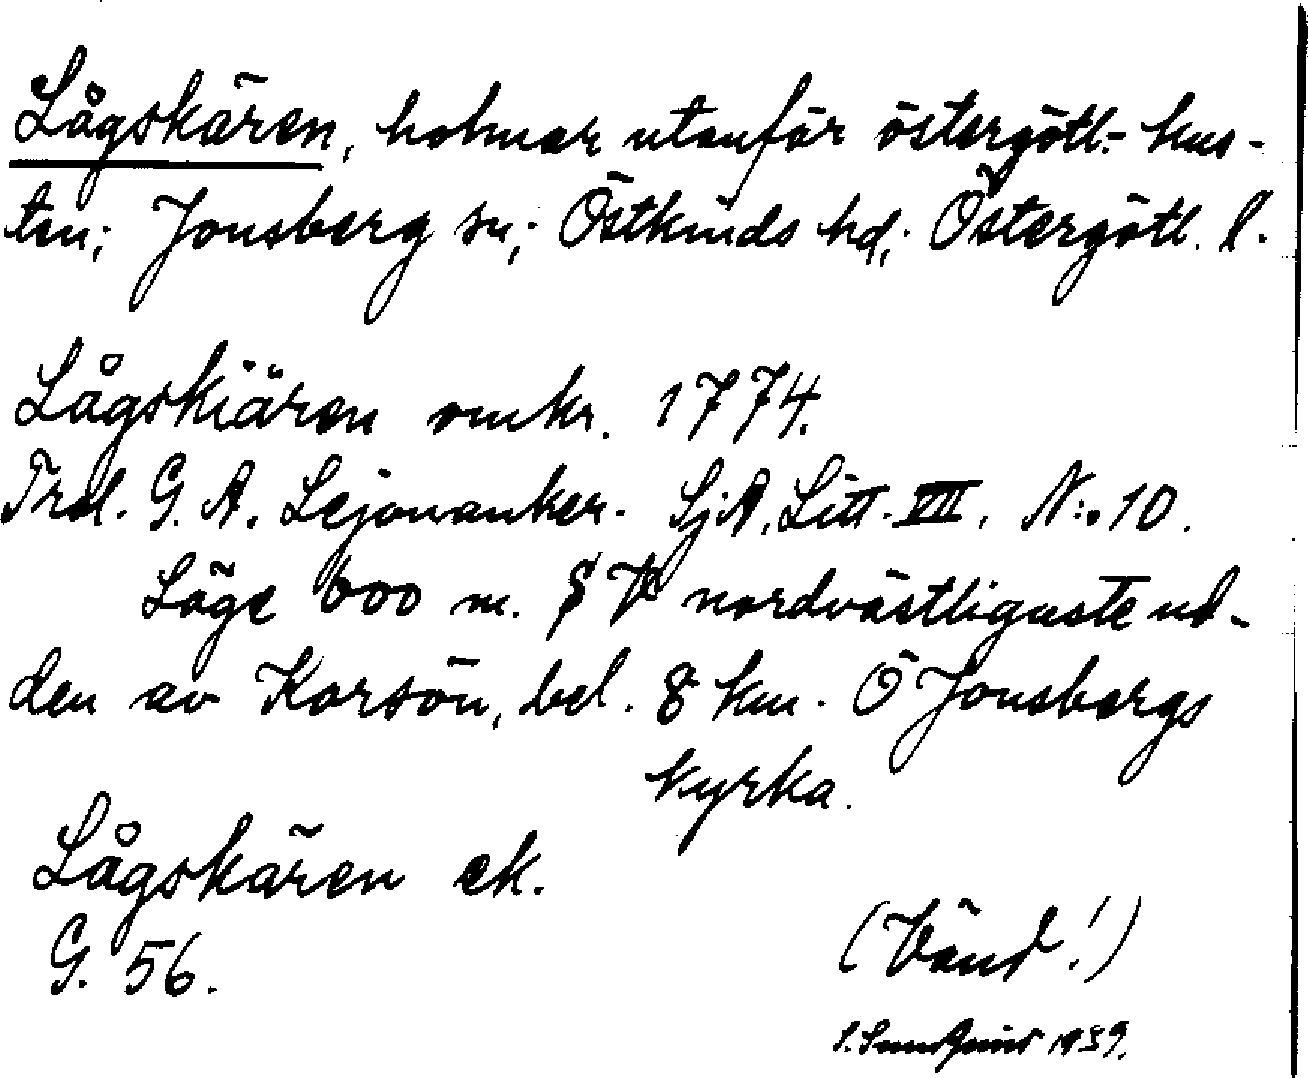 Lågskären, holmar utanför östergötl. kus-
ten; Jonsberg sn; Östkinds hd; Östergötl. l.
Lågskiären omkr. 1774.
Trol. G. A. Lejonanker. SjA, Litt. VII. N:o 10.
Läge 600 m. S V nordvästligaste ud-
den av Korsön, bel. 8 km. Ö Jonsbergs
kyrka.
Lågskären ek.
G. 56.
(Vänd!)
S. Sundquist 1939.